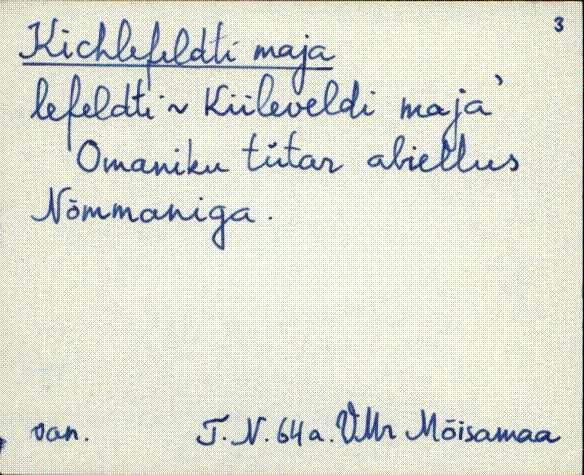 3
Kichlefeldti maja
lefeldti ~ Kiileveldi maja'
Omaniku tütar abiellus
Nõmmaniga.
van. T. N. 64 a. VMr Mõisamaa